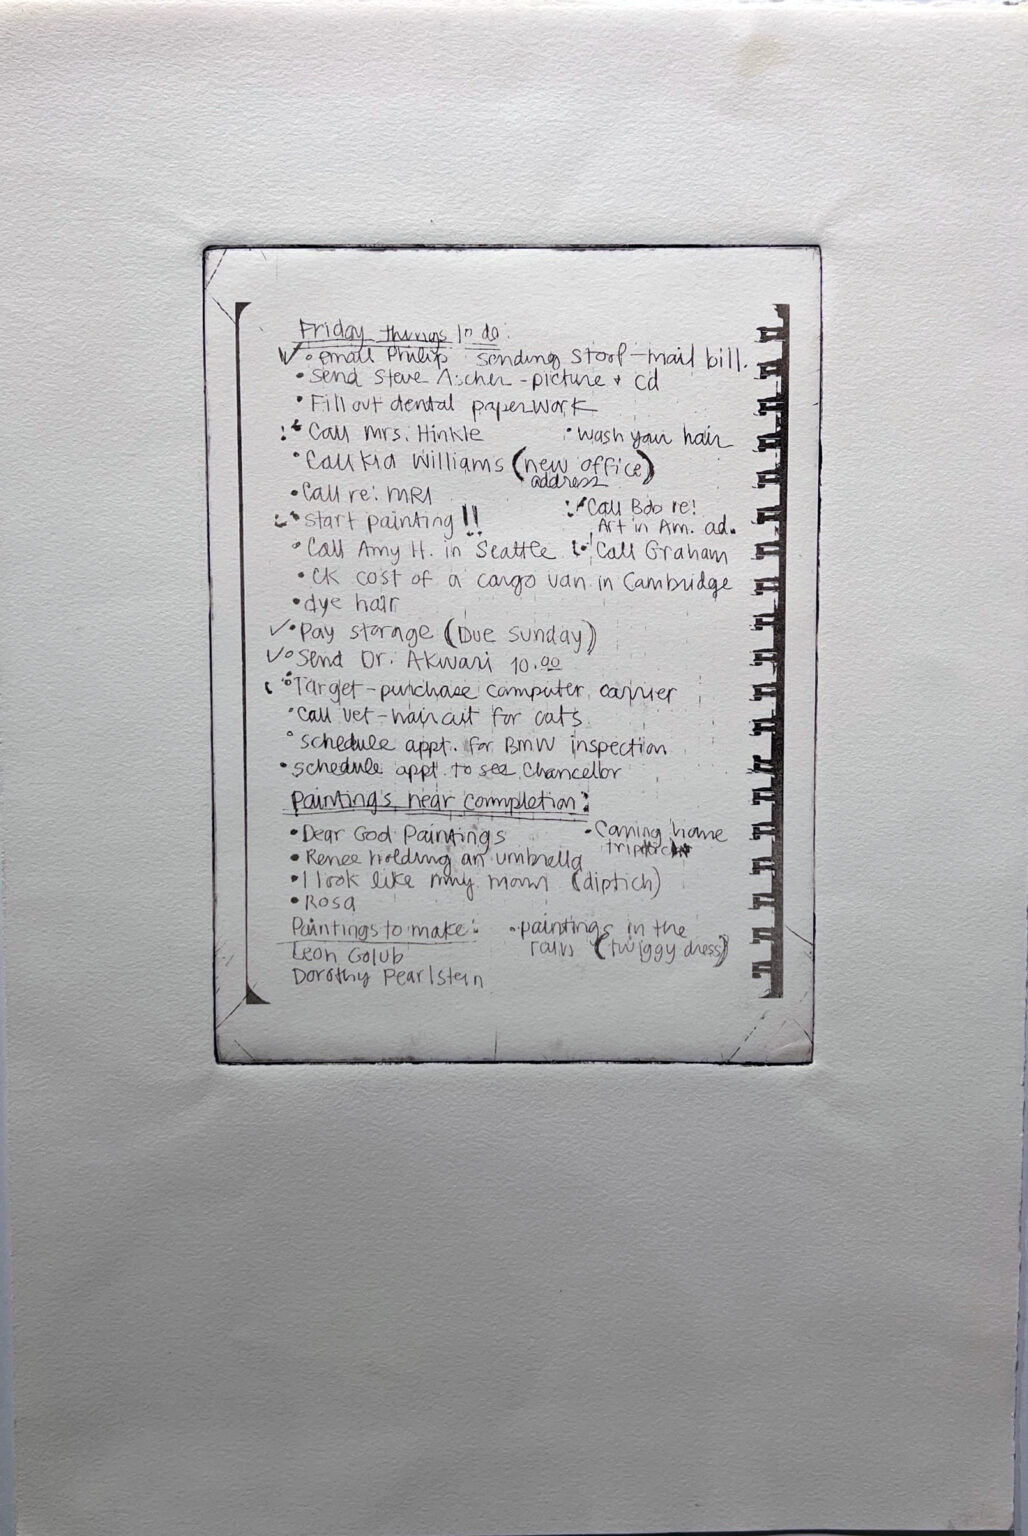 Friday things to do:
✓ • email Philip sending stool - mail bill.
• Send Steve Ascher - picture + cd
• Fill out dental paperwork
• Call Mrs. Hinkle • Wash your hair
• Call Kia Williams (new office)
address
• Call re: MRI
• Call Bob re:
• start painting!! Art in Am. ad.
• Call Amy H. in Seattle • Call Graham
• CK cost of a cargo van in Cambridge
• dye hair
✓ • Pay storage (Due Sunday)
✓ • Send Dr. Akwari 10.00
• Target - purchase computer carrier
• Call vet - haircut for cats
• schedule appt. for BMW inspection
• schedule appt. to see Chancellor
Paintings near completion:
• Dear God Paintings • Coming home
• Renee holding an umbrella
• I look like my mom (diptich)
• Rosa
Paintings to make: • paintings in the
Leon Golub (twiggy dress)
Dorothy Pearlstein